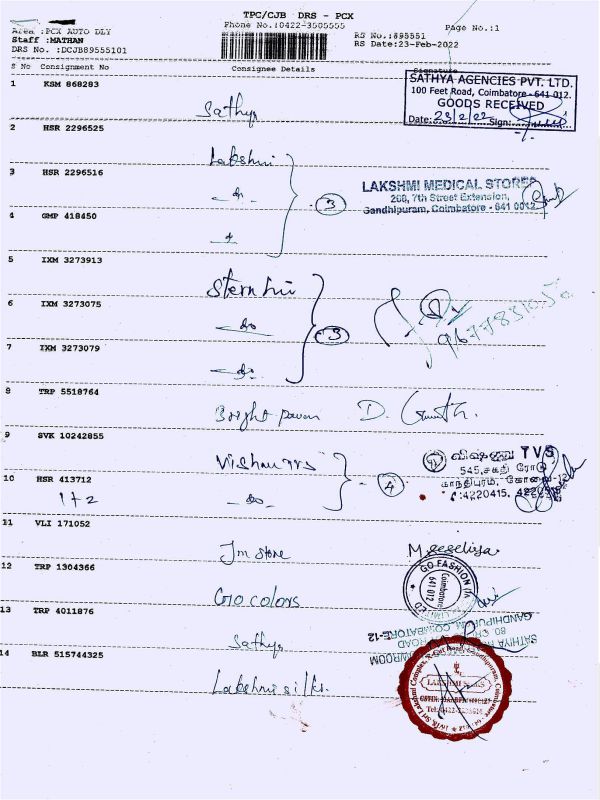 TPC/CJB DRS - PCX
Phone No.:0422-3505555
Page No.:1
Area :PCX AUTO DLY
Staff :MATHAN
DRS No. :DCJB89555101
RS No.:895551
RS Date:23-Feb-2022
S No Consignment No Consignee Details Signature
1 KSM 868283 Sathya
SATHYA AGENCIES PVT. LTD.
100 Feet Road, Coimbatore - 641 012.
GOODS RECEIVED
Date: 23/2/22 Sign:
2 HSR 2296525 Lakshmi
3 HSR 2296516 -do-
3
LAKSHMI MEDICAL STORES
268, 7th Street Extension,
Gandhipuram, Coimbatore - 641 0012
4 GMP 418450
5 IXM 3273913
6 IXM 3273075 -do-
3
7 IXM 3273079 -do-
8 TRP 5518764 Bright power D.
9 SVK 10242855 Vishnu TVS
விஷ்ணு TVS
545, சக்தி ரோடு
காந்திபுரம், கோவை-12
:4220415,
10 HSR 413712 -do-
1+2
4
11 VLI 171052 Jm store
12 TRP 1304366 Go colors
GO FASHION
Coimbatore
641 012
13 TRP 4011876 Sathya
SATHYA
GANDHIPURAM, COIMBATORE-12
14 BLR 515744325 Lakshmi silks.
LAKSHMI SILKS